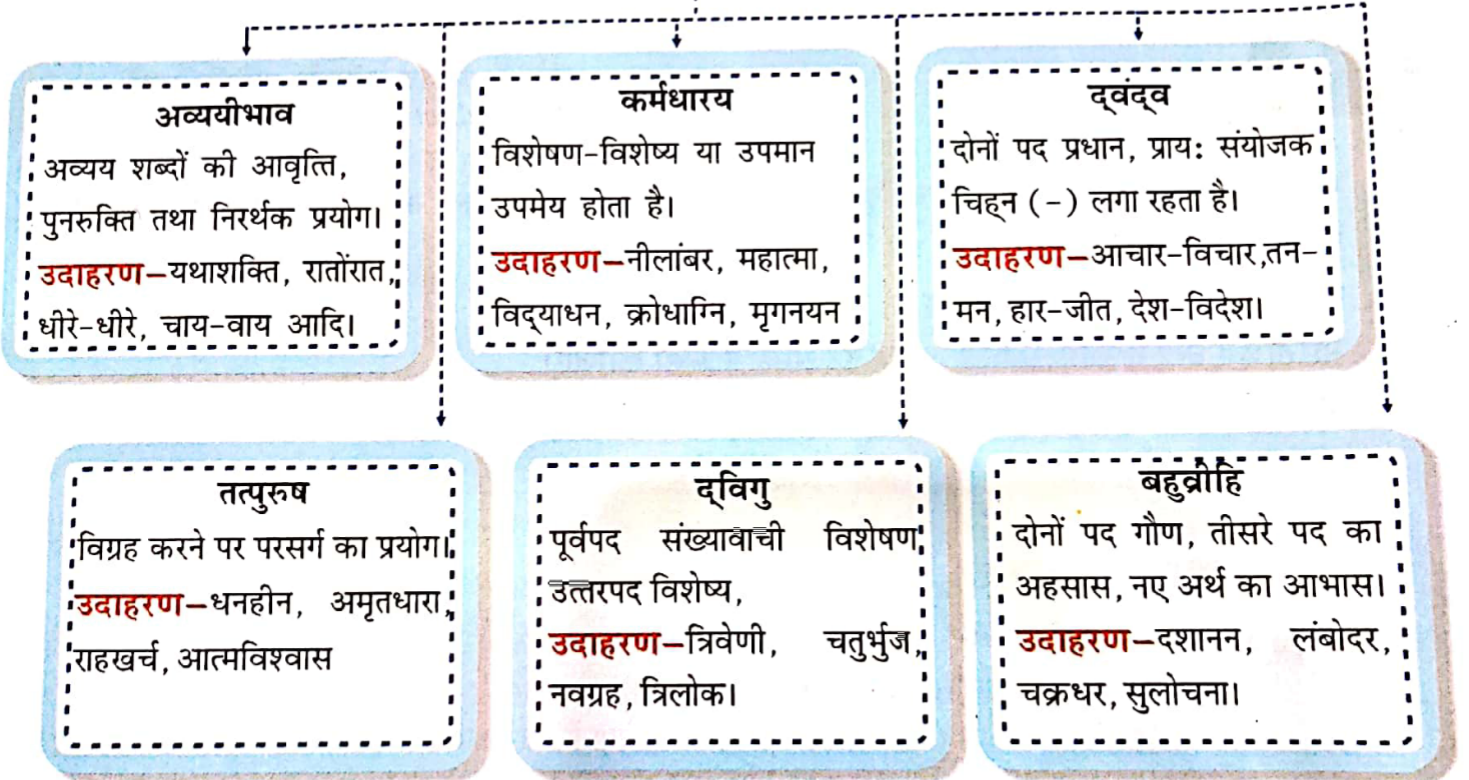 अव्ययीभाव
अव्यय शब्दों की आवृत्ति,
पुनरुक्ति तथा निरर्थक प्रयोग।
उदाहरण–यथाशक्ति, रातोंरात,
धीरे-धीरे, चाय-वाय आदि।
कर्मधारय
विशेषण-विशेष्य या उपमान
उपमेय होता है।
उदाहरण–नीलांबर, महात्मा,
विद्याधन, क्रोधाग्नि, मृगनयन
द्वंद्व
दोनों पद प्रधान, प्रायः संयोजक
चिह्न (-) लगा रहता है।
उदाहरण–आचार-विचार,तन-
मन, हार-जीत, देश-विदेश।
तत्पुरुष
विग्रह करने पर परसर्ग का प्रयोग।
उदाहरण–धनहीन, अमृतधारा,
राहखर्च, आत्मविश्वास
द्विगु
पूर्वपद संख्यावाची विशेषण
उत्तरपद विशेष्य,
उदाहरण–त्रिवेणी, चतुर्भुज,
नवग्रह, त्रिलोक।
बहुव्रीहि
दोनों पद गौण, तीसरे पद का
अहसास, नए अर्थ का आभास।
उदाहरण–दशानन, लंबोदर,
चक्रधर, सुलोचना।